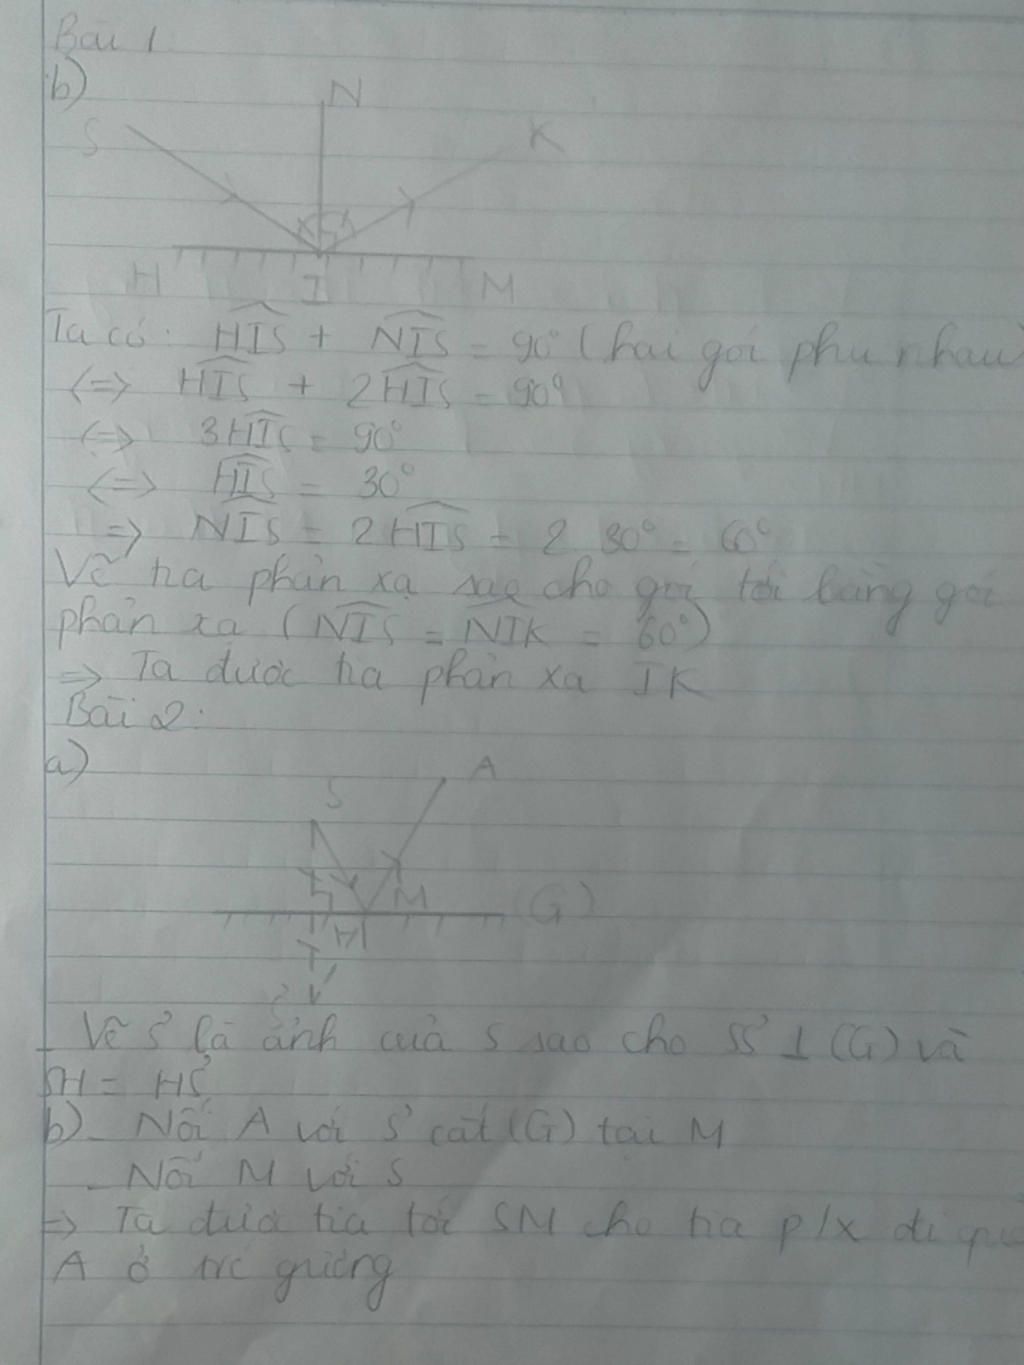 Bài 1
b)
N
S
K
H I M
Ta có: HIS + NIS = 90° (hai góc phụ nhau)
<=> HIS + 2HIS = 90°
<=> 3HIS = 90°
<=> HIS = 30°
=> NIS = 2HIS = 2 30° = 60°
Vẽ tia phản xạ sao cho góc tới bằng góc
phản xạ (NIS = NIK = 60°)
=> Ta được tia phản xạ IK
Bài 2:
a)
A
S
M (G)
H
S'
Vẽ S' là ảnh của S sao cho SS' ⊥ (G) và
SH = HS'
b) - Nối A với S' cắt (G) tại M
- Nối M với S
=> Ta được tia tới SM cho tia p/x đi qua
A ở trc gương